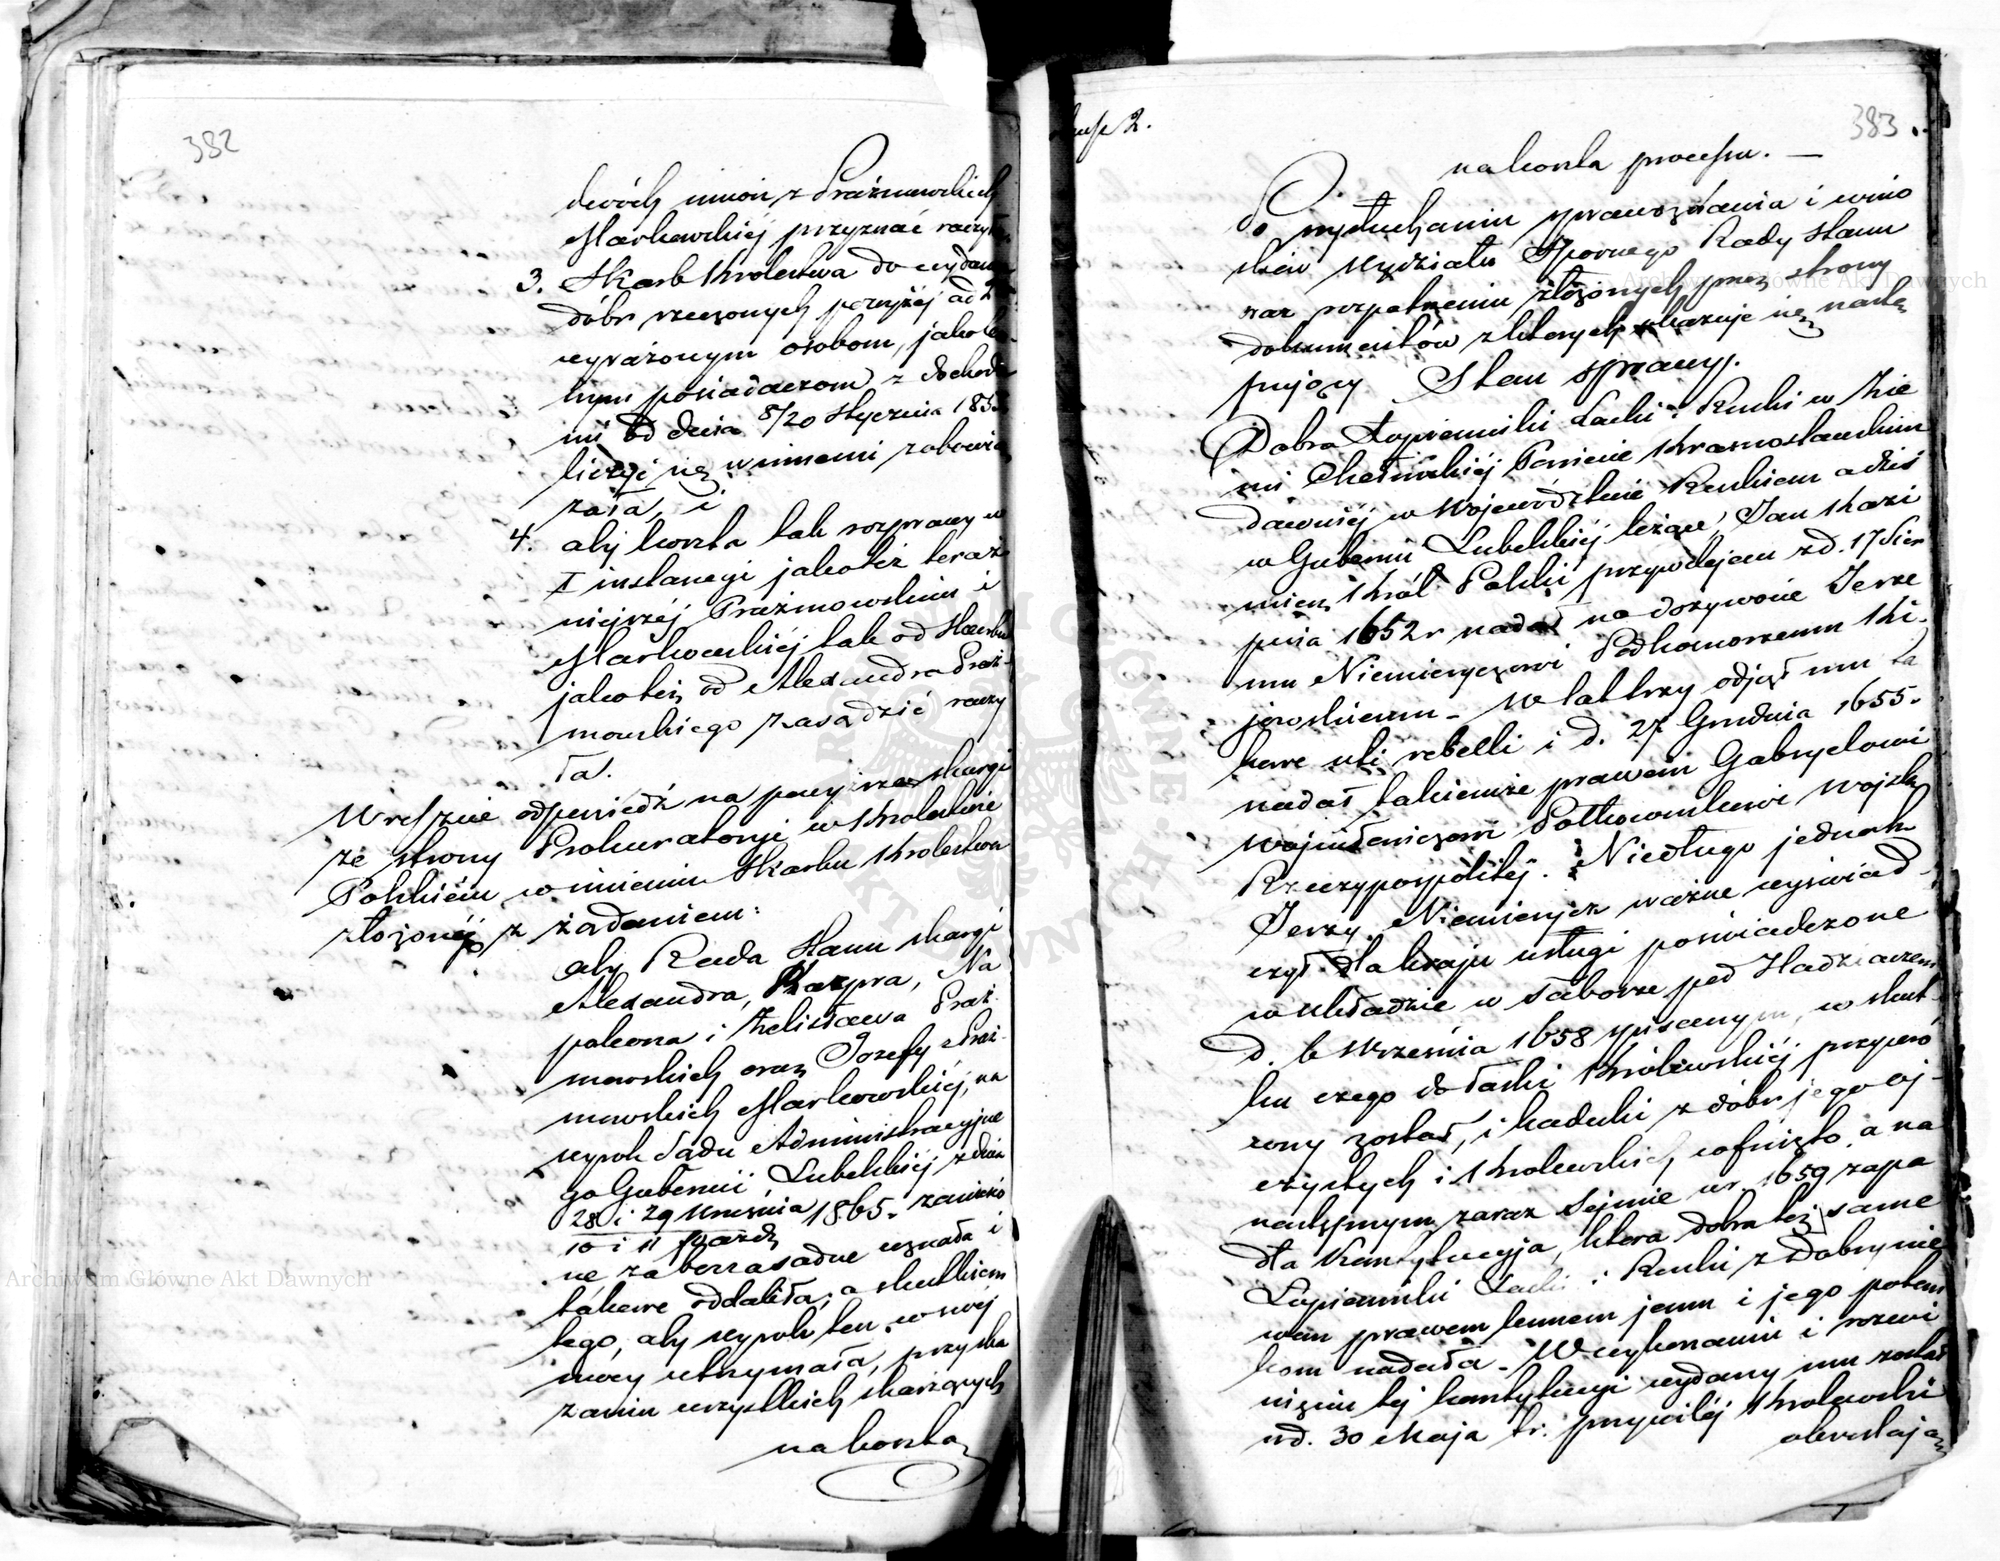 382
dwóch imion z Prażmowskich
Markowskiéj przyznać raczyła
3. Skarb Królestwa do wydania
dóbr rzeczonych powyżéj ad 2
wyrażonym osobom, jako
nym posiadaczom z dochoda
mi od dnia 8/20 Stycznia 185
liczyć się winnemi zobowią
zała, i
4. aby koszta tak rozprawy w
I instancyi jakoteż teraź
niejszéj Prażmowskim i
Markowskiéj tak od Skarbu
jakoteż od Alexandra Praż
mowskiego zasądzić raczy
ła.
Wreszcie odpowiedź na powyższe skargi
ze strony Prokuratoryi w Królestwie
Polskiém w imieniu Skarbu Królestwa
złożonéj z żądaniem:
aby Rada Stanu skargi
Alexandra, Kacpra, Na
poleona i Zdzisława Praż
mowskich oraz Józefy z Praż
mowskich Markowskiéj, na
wyrok Sądu Administracyjne
go Gubernii Lubelskiéj z dnia
28 i 29 Września 1865. zaniesio
10 i 11 Paźdz
ne za bezzasadne uznała i
takowe oddaliła; a skutkiem
tego, aby wyrok ten w swéj
mocy utrzymała, przy ska
zaniu wszystkich skarżących
na koszta
383
2.
na koszta processu. —
Po wysłuchaniu sprawozdania i wnio
sków Wydziału Spornego Rady Stanu
oraz rozpatrzeniu złożonych przez strony
dokumentów z których okazuje się nastę
pujący Stan sprawy.
Dobra Łopienniki Lacki i Ruski w Zie
mi Chełmskiéj Powiecie Krasnostawskim
dawniéj w Województwie Ruskiem a dziś
w Gubernii Lubelskiéj leżące, Jan Kazi
mierz Król Polski przywilejem z d. 17 Sier
pnia 1652 r nadał na dożywocie Jerze
mu Niemieryczowi Podkomorzemu Ki
jowskiemu. W lat trzy odjął mu ta
kowe uti rebelli i d. 27 Grudnia 1655.
nadał takiemże prawem Gabryelowi
Wojniłowiczowi Półkownikowi Wojsk
Rzeczypospolitéj. Niedługo jednak
Jerzy Niemierycz ważne wyświad
czył dla kraju usługi poświadczone
w układzie w Taborze pod Hadziaczem
d. 6 Września 1658 spisanym, w skut
ku czego do łaski Królewskiéj przywró
cony został, i kaduki z dóbr jego oj
czystych i Królewskich cofnięto, a na
następnym zaraz Sejmie w r. 1659 zapa
dła Konstytucyja, która dobra też same
Łopienniki Lacki i Ruski z Dobrynio
wem prawem lennem jemu i jego potom
kom nadała. W wykonaniu i rozwi
nięciu téj konstytucyi wydany mu został
w d. 30 Maja t.r. przywiléj Królewski
określają